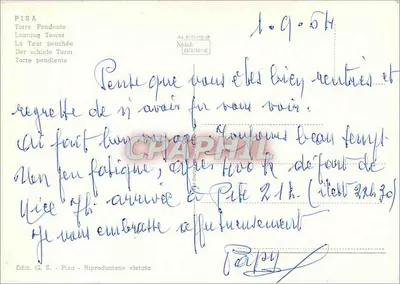 PISA
Torre Pendente
Leaning Tower
La Tour penchée
Der schiefe Turm
Torre pendiente
1.9.54
Pense que vous êtes bien rentrés et
regrette de n'avoir pu vous voir.
ai fait bon voyage Toujours beau temps
Un peu fatigué, après 400 k départ de
Nice 7h arrivée à Pise 21h. (c'est 22h30)
Je vous embrasse affectueusement
Papy
CPAPHIL
Ediz. G. S. - Pisa - Riproduzione vietata